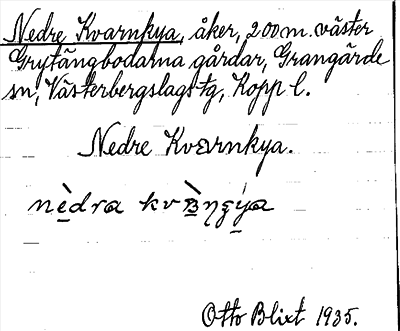 Nedre Kvarnkya, åker, 200 m. väster
Grytängbodarna gårdar, Grangärde
sn, Västerbergslags tg, Kopp l.
Nedre Kvarnkya.
Otto Blixt 1935.